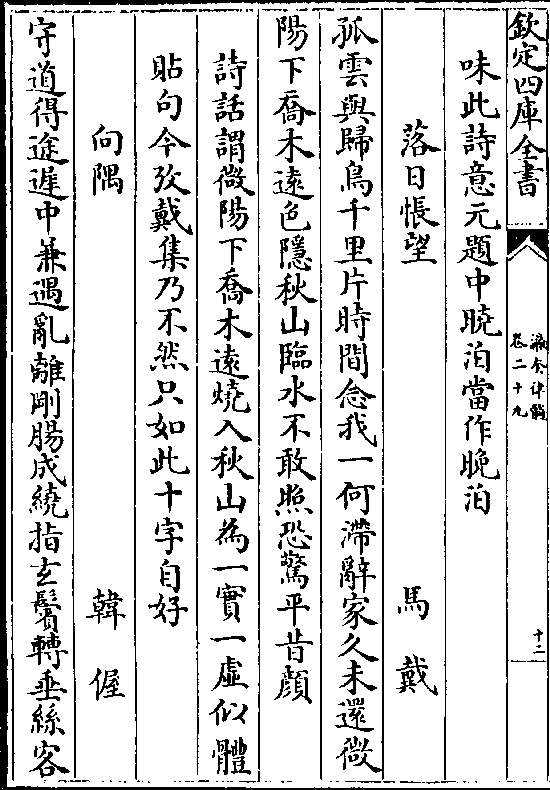 欽定四庫全書
瀛奎律髓
卷二十九
十二
味此詩意元題中曉泊當作晚泊
落日悵望　馬戴
孤雲與歸鳥千里片時間念我一何滯辭家久未還微
陽下喬木遠色隱秋山臨水不敢照恐驚平昔顔
詩話謂微陽下喬木遠燒入秋山為一實一虛似體
貼句今攷戴集乃不然只如此十字自好
向隅　韓偓
守道得途遲中兼遇亂離剛腸成繞指玄鬢轉垂絲客